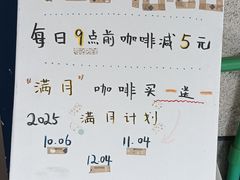 每日9点前咖啡减5元
"满月"咖啡买一送一
2025 满月计划
10.06 11.04
12.04